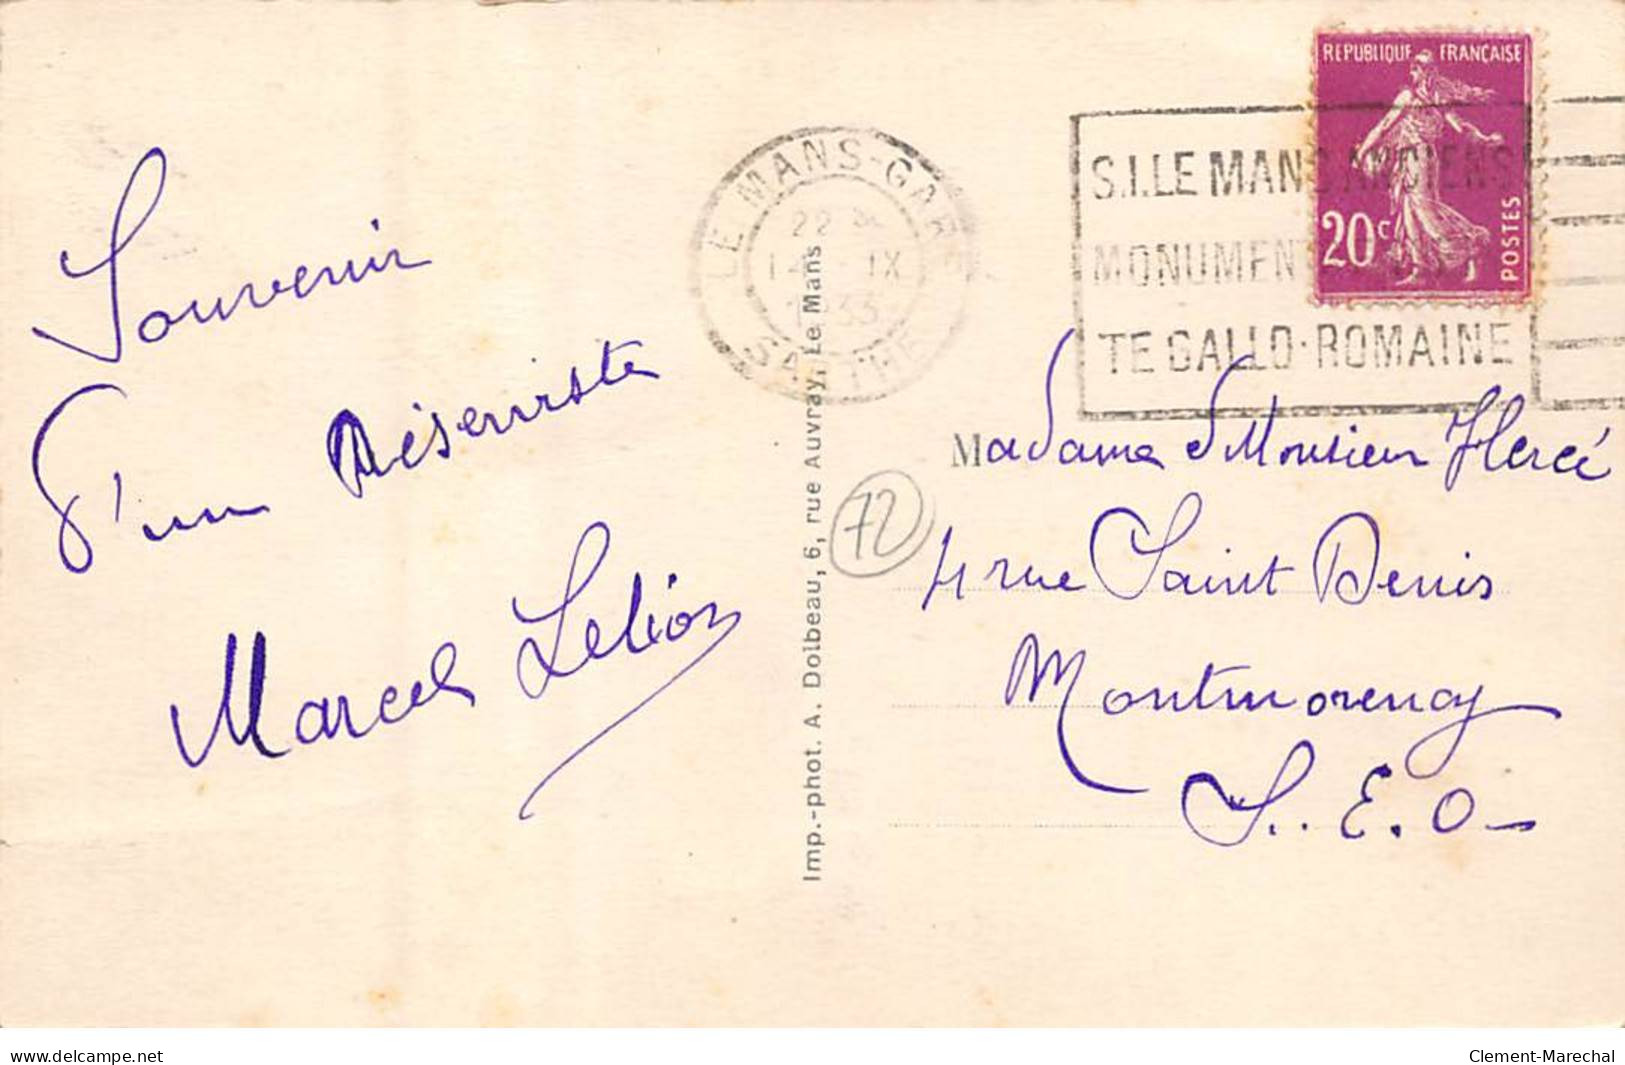 Souvenir
d'un Réserviste
Marcel
REPUBLIQUE FRANÇAISE
20c
POSTES
LE MANS-GARE
22
IX
1933
SARTHE
S.I. LE MANS ANCIENS
MONUMEN
TE GALLO-ROMAINE
Imp.-phot. A. Dolbeau, 6, rue Auvray, Le Mans
72
Madame & Monsieur
4 rue Saint Denis
Montmorency
S. E. O
www.delcampe.net
Clement-Marechal